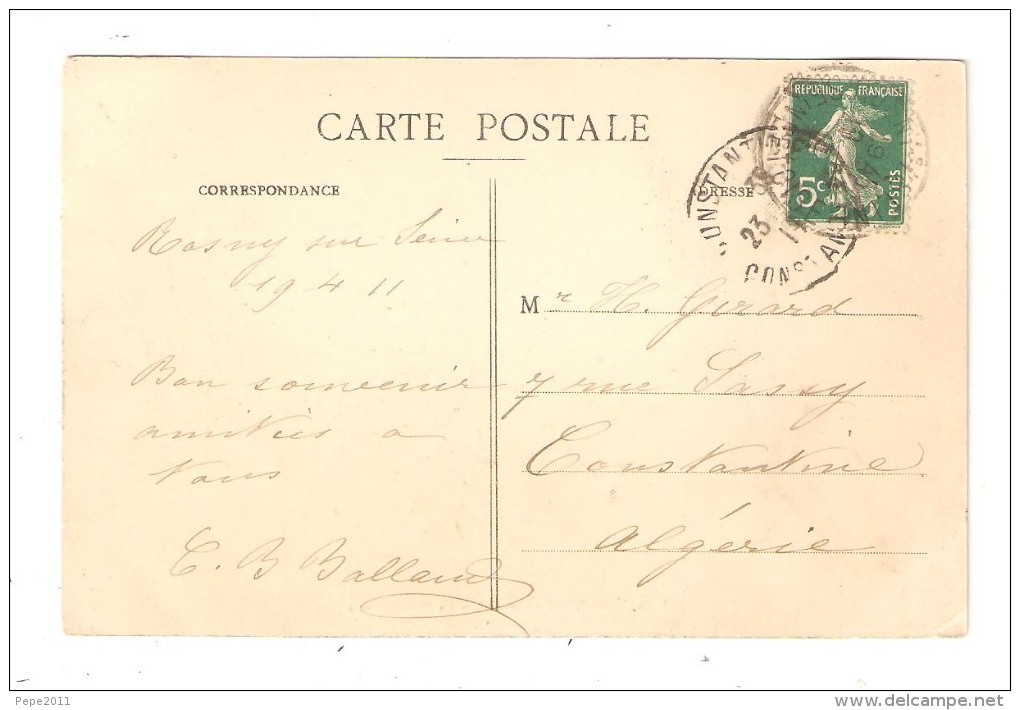 CARTE POSTALE
CORRESPONDANCE
Rosny sur Seine
19 4 11
Bon souvenir
amitiés a
tous
C. B Balland
RÉPUBLIQUE FRANÇAISE
5c
POSTES
CONSTANTINE
23
CONSTANTINE
ADRESSE
Mr H. Girard
7 rue Sassy
Constantine
Algérie
Pepe2011
delcampe.net